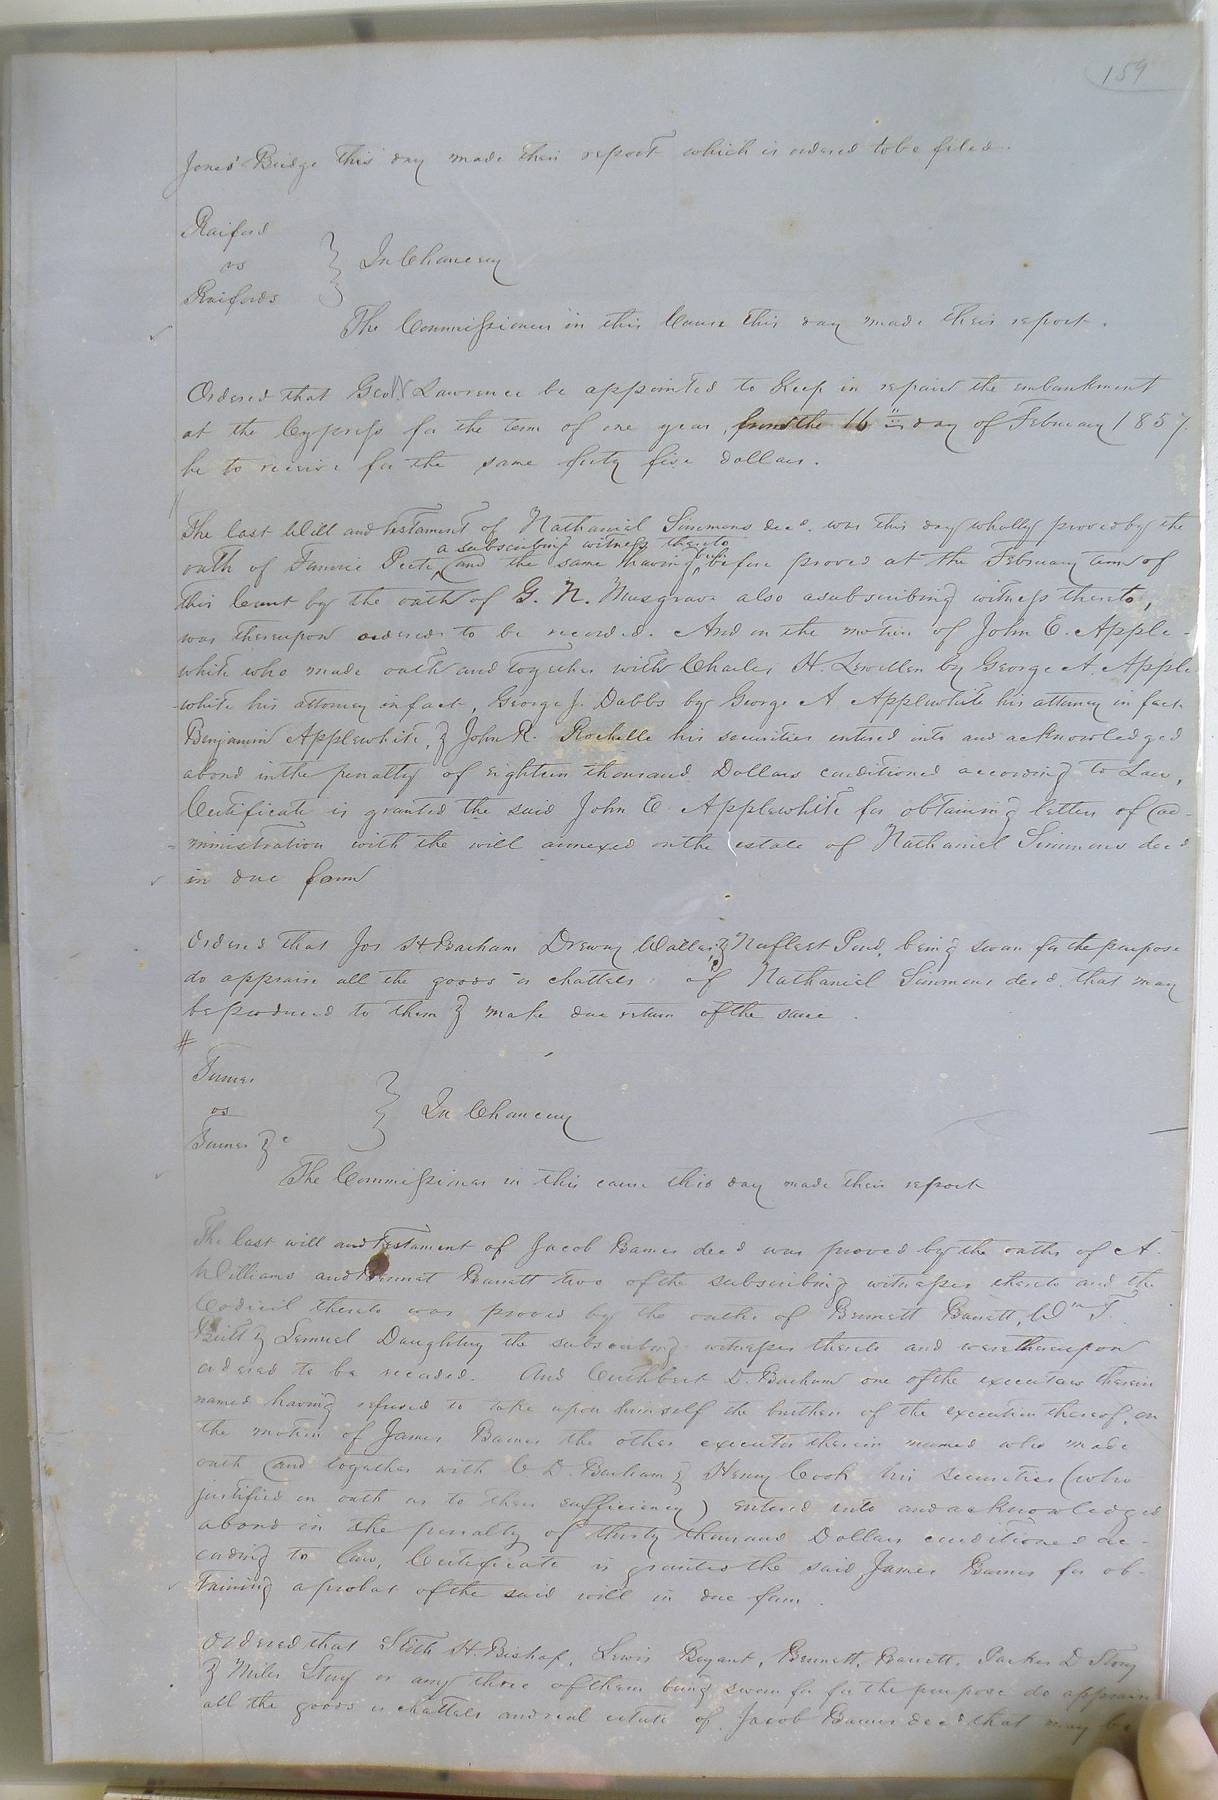 159
Jones' Bridge this day made their report which is ordered to be filed.
Raiford
vs
Raifords
In Chancery
The Commissioners in this Cause this day made their report.
Ordered that Geo Lawrence be appointed to Keep in repair the embankment
at the Cypress for the term of one year, from the 16th day of February 1857.
he to receive for the same forty five dollars.
The last Will and testament of Nathaniel Simmons decd. was this day wholly proved by the
a subscribing witness thereto
oath of Peete, and the same having been before proved at the February term of
this Court by the oath of G. N. Musgrave also a subscribing witness thereto,
was thereupon ordered to be recorded. And on the motion of John E. Apple-
white who made oath and together with Charles H. Lewellen by George A. Apple
-white his attorney in fact, George J. Dabbs by George A Applewhite his attorney in fact
Benjamin Applewhite, & John R. Rochelle his securities entered into and acknowledged
a bond in the penalty of eighteen thousand Dollars conditioned according to Law,
Certificate is granted the said John E. Applewhite for obtaining letters of ad-
-ministration with the will annexed on the estate of Nathaniel Simmons decd
in due form
Ordered that Jos H Barham Drewry Waller & Pond, being sworn for the purpose
do appraise all the goods & chattels of Nathaniel Simmons decd. that may
be produced to them & make due return of the same.
#
Turner
vs
Turner &c
In Chancery
The Commissioner in this cause this day made their report
The last will and testament of Jacob Barnes decd was proved by the oaths of A.
Williams and Bennet Barrett two of the subscribing witnesses thereto and the
Codicil thereto was proved by the oaths of Bennett Barrett, Wm T.
Britt & Lemuel Daughtry the subscribing witnesses thereto and were thereupon
ordered to be recorded. And Cuthbert D. Barham one of the executors therein
named having refused to take upon himself the burthen of the execution thereof, on
the motion of James Barnes the other executor therein named who made
oath and together with C D. Barham & Henry Cook his securities (who
justified on oath as to their sufficiency) entered into and acknowledged
a bond in the penalty of thirty thousand Dollars conditioned ac-
cording to law, Certificate is granted the said James Barnes for ob-
taining a probat of the said will in due form.
Ordered that Stith H. Bishop, Lewis Bryant, Bennett Barrett, Parker D Story
& Miles Story or any three of them being sworn for for the purpose do appraise
all the goods & chattels and real estate of Jacob Barnes decd that may be